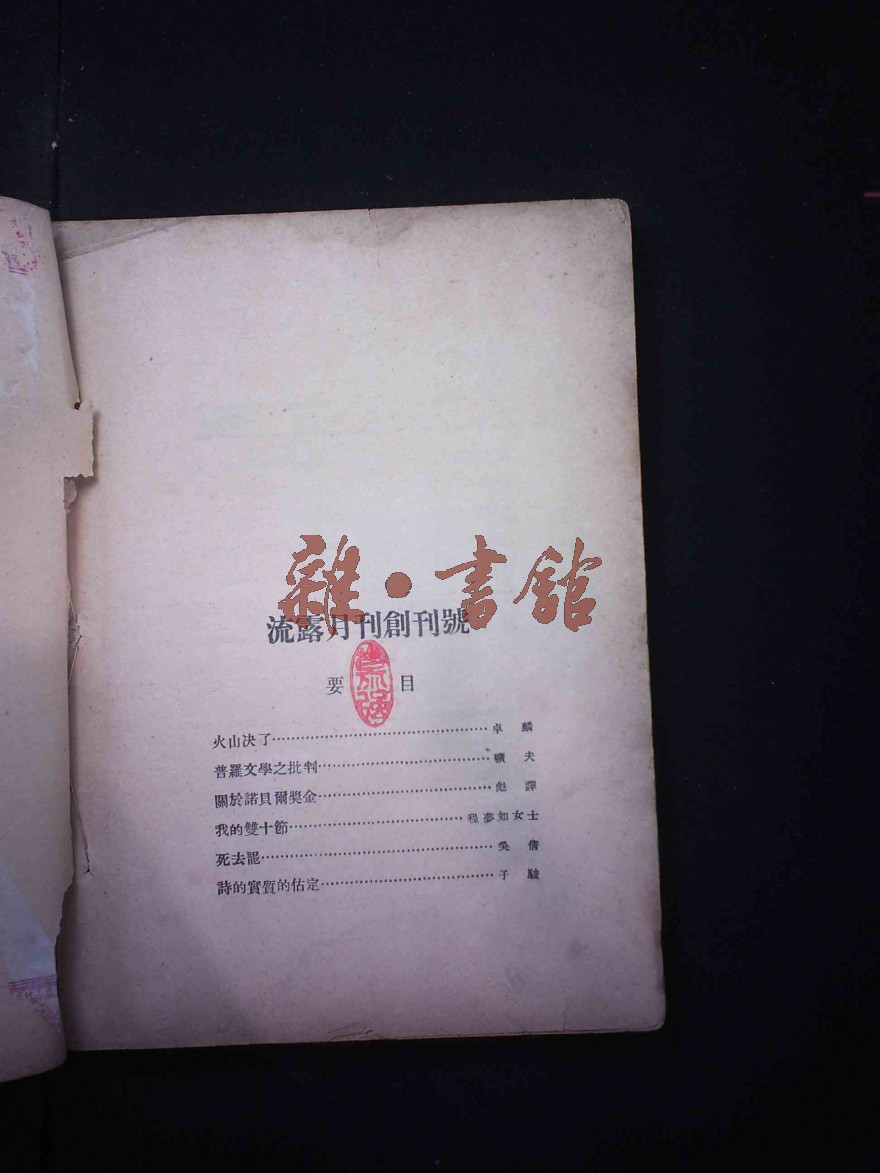 雜·書館
流露月刊創刊號
要目
火山決了…………………………………卓麟
普羅文學之批判…………………………曠夫
關於諾貝爾獎金…………………………彪譯
我的雙十節…………………………程夢如女士
死去罷……………………………………吳倩
詩的實質的估定…………………………于駿